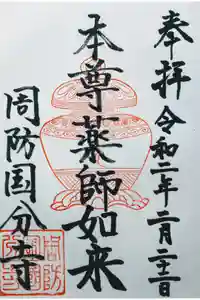 奉拝 令和二年二月
本尊薬師如来
周防国分寺